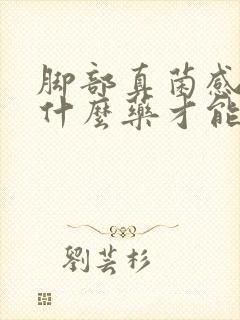 脚部真菌感
什麼藥才能
劉芸杉